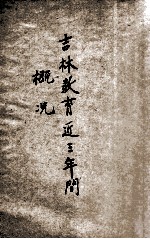 吉林教育近三年間
概況